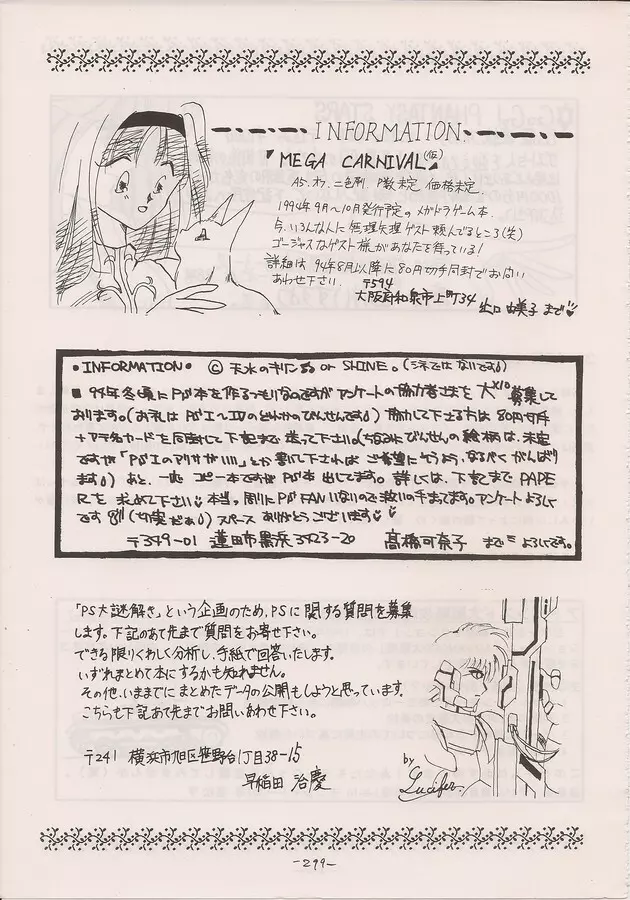 INFORMATION.
MEGA CARNIVAL(仮)
A5.オフ.二色刷 P数未定 価格未定.
1994年9月〜10月発行予定のメガドラゲーム本
今、いろんな人に無理矢理ゲスト頼んでるところ(笑)
ゴージャスなゲスト様があなたを待っている!
詳細は 94年8月以降に80円切手同封でお問い
あわせ下さい. 〒594
大阪府和泉市上町34 出口 由美子 まで
・INFORMATION・ © 天水のキリン or SHINE。(シネではないです)
■ 94年冬頃にPS本を作るつもりなのですがアンケートの協力者さまを大×10募集して
おります。(お礼はPSⅠ〜Ⅳのどれかのびんせんです)協力して下さる方は80円切手
+アテ名カードを同封にて下記まで送って下さい。(ちなみにびんせんの絵柄は、未定
ですが「PSⅠのアリサがいい」とか書いて下されば ご希望にそうよう、なるべくがんばり
ます)あと、一応コピー本ですがPS本出してます。詳しくは、下記までPAPE
Rを求めて下さい 本当。周りにPSFANいないので救いの手まってます。アンケートよろしく
です (切実だぁ)スペースありがとうございます
〒349-01 蓮田市黒浜3423-20 髙橋可奈子 まで よろしくです。
「PS大謎解き」という企画のため、PSに関する質問を募集
します。下記のあて先まで質問をお寄せ下さい。
できる限りくわしく分析し、手紙で回答いたします。
いずれまとめて本にするかも知れません。
その他、いままでにまとめたデータの公開もしようと思っています。
こちらも下記あて先までお問いあわせ下さい。
〒241 横浜市旭区笹野台1丁目38-15
早稲田 治慶
by Lucifer.
-299-